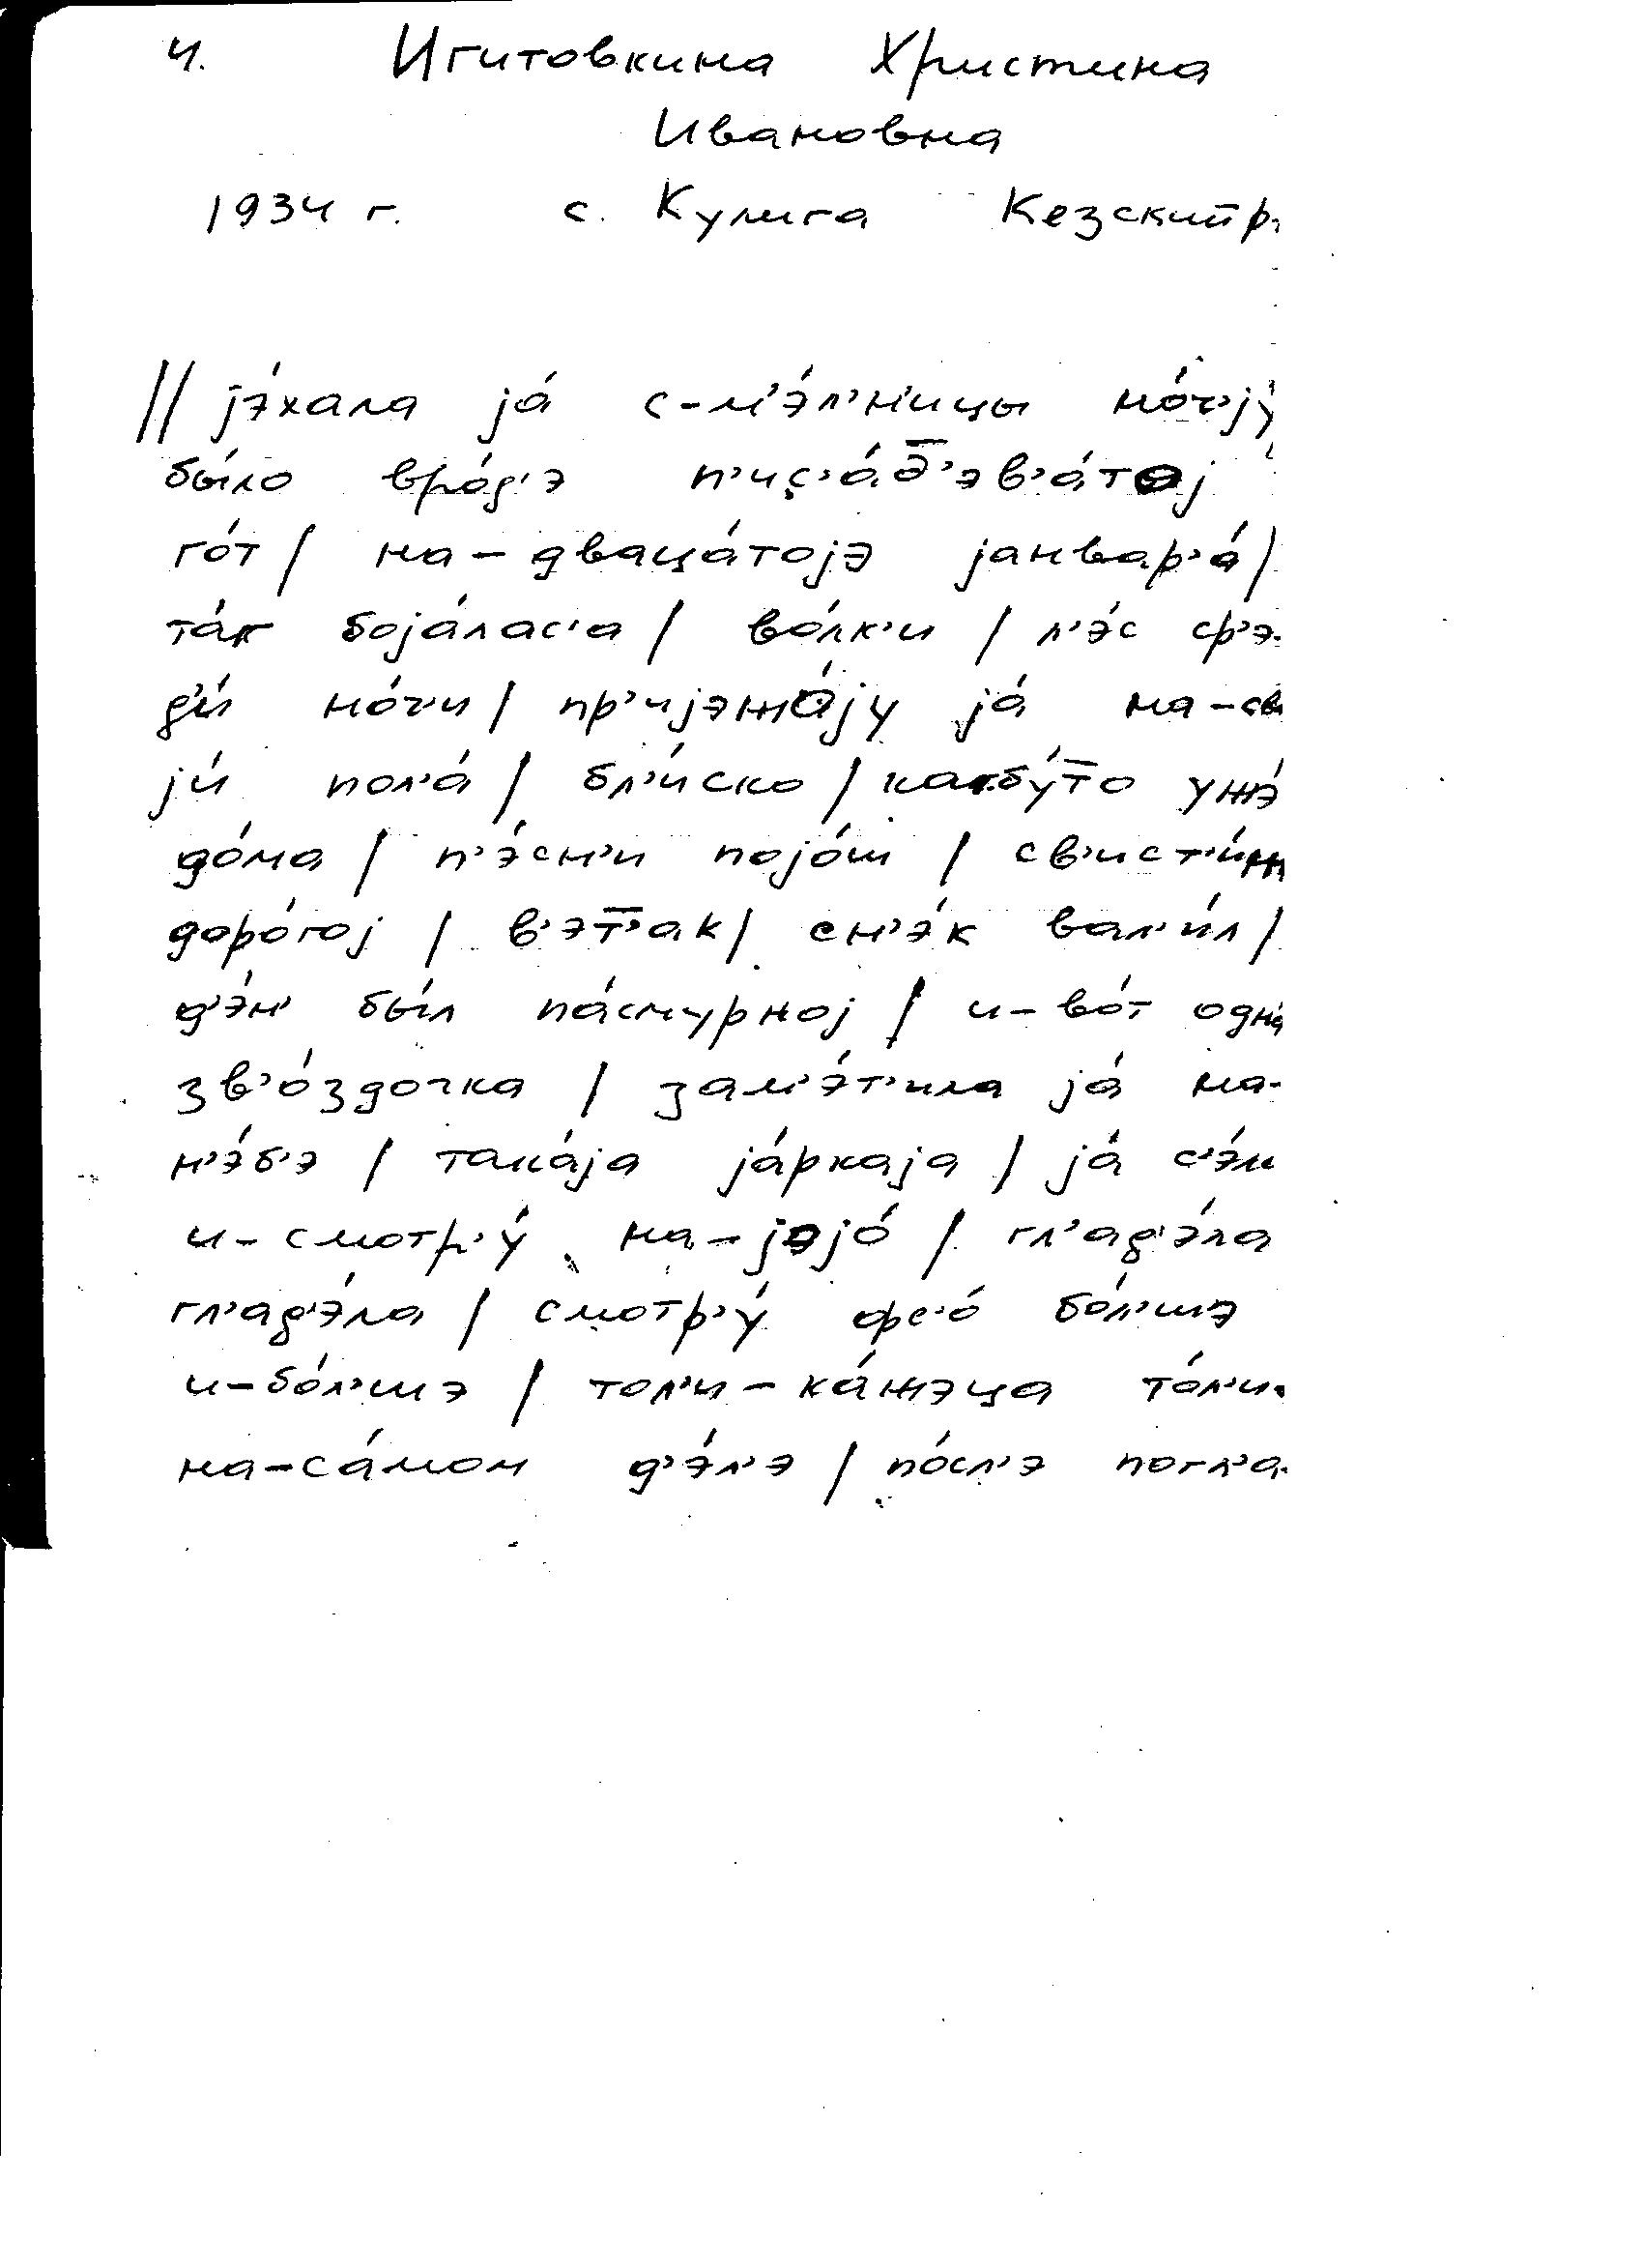 4. Игитовкина Христина
Ивановна
1934 г. с. Кулига Кезский р.
// jэ́хала jа́ с-м'э́л'н'ицы но́ч'jу
бы́ло вро́д'э п'ис'а́д̅'эв'а́тоj
го́т / на-дваца́тоjэ jанвар'а́ /
та́к боjа́лас'а / во́лк'и / л'э́с ср'э-
д'и́ но́ч'и / пр'иjэжа́jу jа́ на-сво
jи́ пол'а́ / бл'и́ско / как-бу́т̅о ужэ́
до́ма / п'э́сн'и поjо́ш / св'ист'и́ш
доро́гоj / в'эт̅'ак / сн'э́к вал'и́л /
д'э́н' бы́л па́смурноj / и-во́т одна́
зв'о́здочка / зам'э́т'ила jа́ на-
н'э́б'э / така́jа jа́ркаjа / jа́ с'э́м
и-смотр'у́ на-jэjо́ / гл'ад'э́ла
гл'ад'э́ла / смотр'у́ фс'о́ бо́л'шэ
и-бо́л'шэ / тол'и-ка́жэца то́л'и-
на-са́мом д'э́л'э / по́сл'э погл'а-